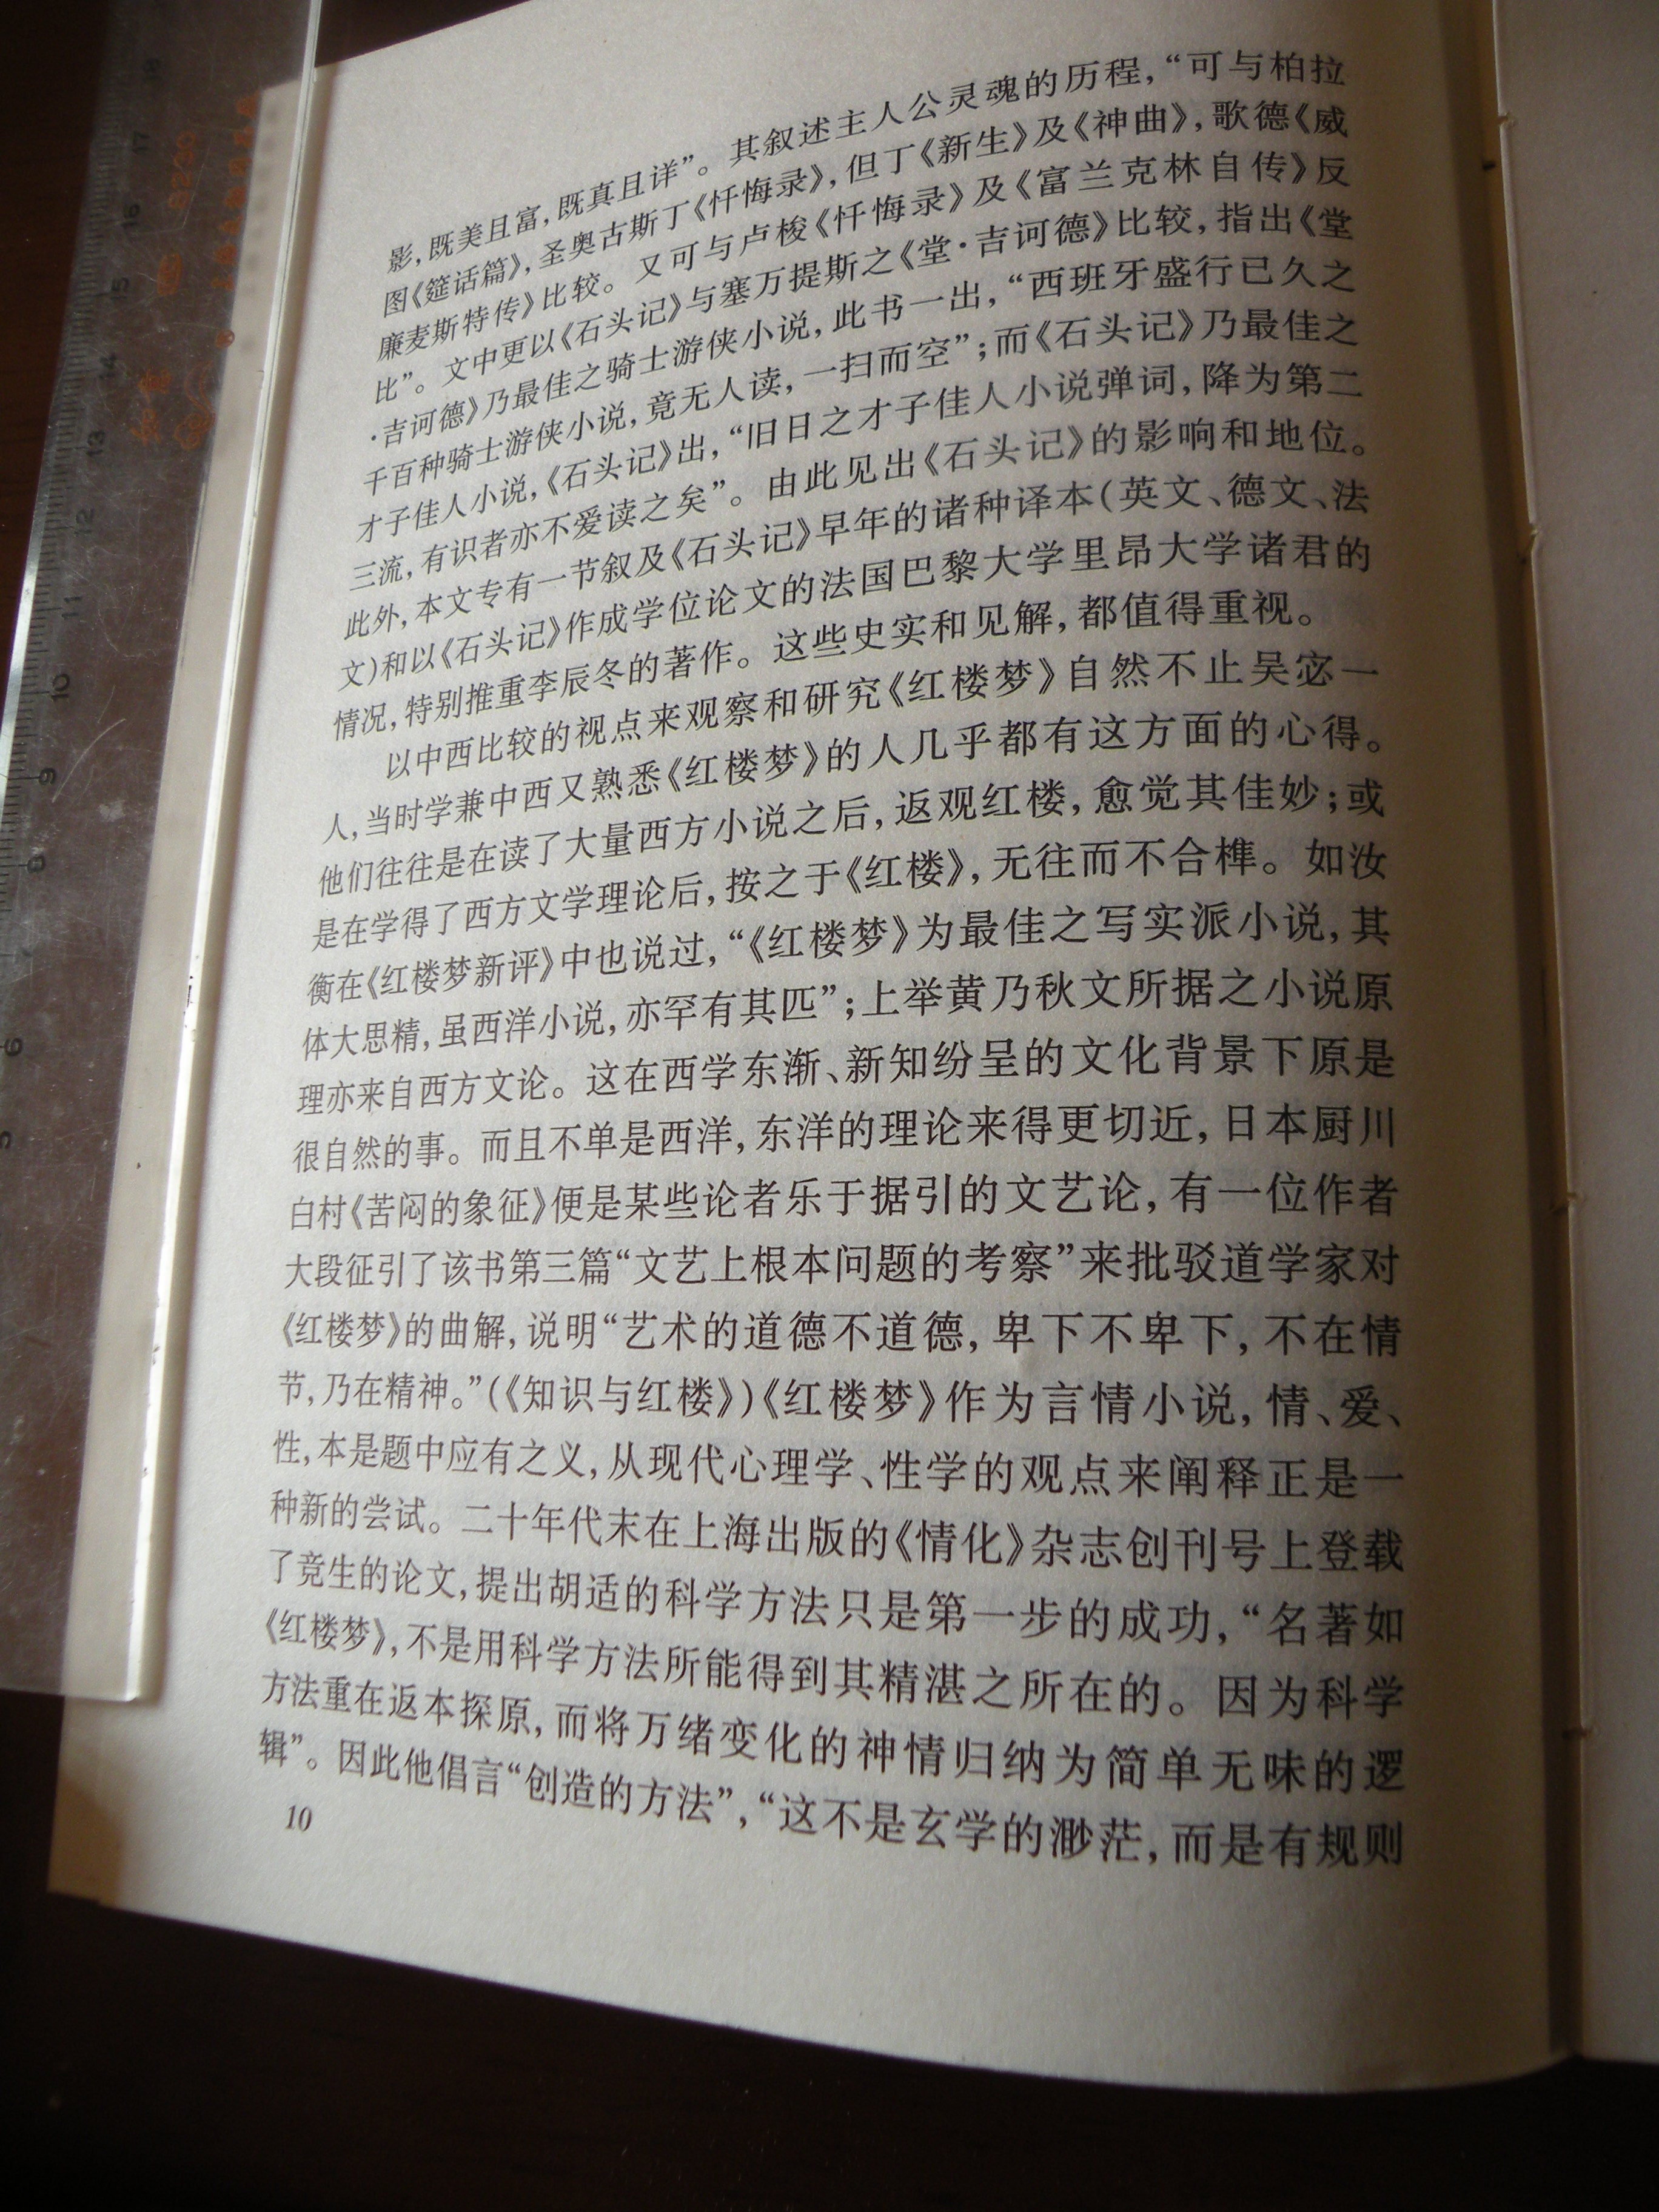 影，既美且富，既真且详”。其叙述主人公灵魂的历程，“可与柏拉
图《筵话篇》，圣奥古斯丁《忏悔录》，但丁《新生》及《神曲》，歌德《威
廉麦斯特传》比较。又可与卢梭《忏悔录》及《富兰克林自传》反
比”。文中更以《石头记》与塞万提斯之《堂·吉诃德》比较，指出《堂
·吉诃德》乃最佳之骑士游侠小说，此书一出，“西班牙盛行已久之
千百种骑士游侠小说，竟无人读，一扫而空”；而《石头记》乃最佳之
才子佳人小说，《石头记》出，“旧日之才子佳人小说弹词，降为第二
三流，有识者亦不爱读之矣”。由此见出《石头记》的影响和地位。
此外，本文专有一节叙及《石头记》早年的诸种译本（英文、德文、法
文）和以《石头记》作成学位论文的法国巴黎大学里昂大学诸君的
情况，特别推重李辰冬的著作。这些史实和见解，都值得重视。
以中西比较的视点来观察和研究《红楼梦》自然不止吴宓一
人，当时学兼中西又熟悉《红楼梦》的人几乎都有这方面的心得。
他们往往是在读了大量西方小说之后，返观红楼，愈觉其佳妙；或
是在学得了西方文学理论后，按之于《红楼》，无往而不合榫。如汝
衡在《红楼梦新评》中也说过，“《红楼梦》为最佳之写实派小说，其
体大思精，虽西洋小说，亦罕有其匹”；上举黄乃秋文所据之小说原
理亦来自西方文论。这在西学东渐、新知纷呈的文化背景下原是
很自然的事。而且不单是西洋，东洋的理论来得更切近，日本厨川
白村《苦闷的象征》便是某些论者乐于据引的文艺论，有一位作者
大段征引了该书第三篇“文艺上根本问题的考察”来批驳道学家对
《红楼梦》的曲解，说明“艺术的道德不道德，卑下不卑下，不在情
节，乃在精神。”（《知识与红楼》）《红楼梦》作为言情小说，情、爱、
性，本是题中应有之义，从现代心理学、性学的观点来阐释正是一
种新的尝试。二十年代末在上海出版的《情化》杂志创刊号上登载
了竞生的论文，提出胡适的科学方法只是第一步的成功，“名著如
《红楼梦》，不是用科学方法所能得到其精湛之所在的。因为科学
方法重在返本探原，而将万绪变化的神情归纳为简单无味的逻
辑”。因此他倡言“创造的方法”，“这不是玄学的渺茫，而是有规则
10
18
17
16
15
14
13
12
11
10
9
8
7
6
5
8230